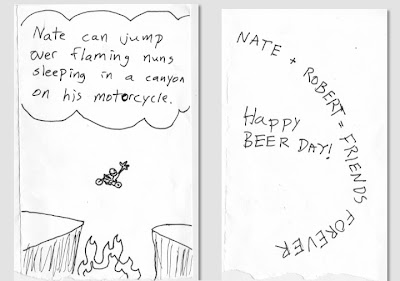 Nate can jump
over flaming nuns
sleeping in a canyon
on his motorcycle.
NATE + ROBERT = FRIENDS FOREVER
Happy
BEER DAY!